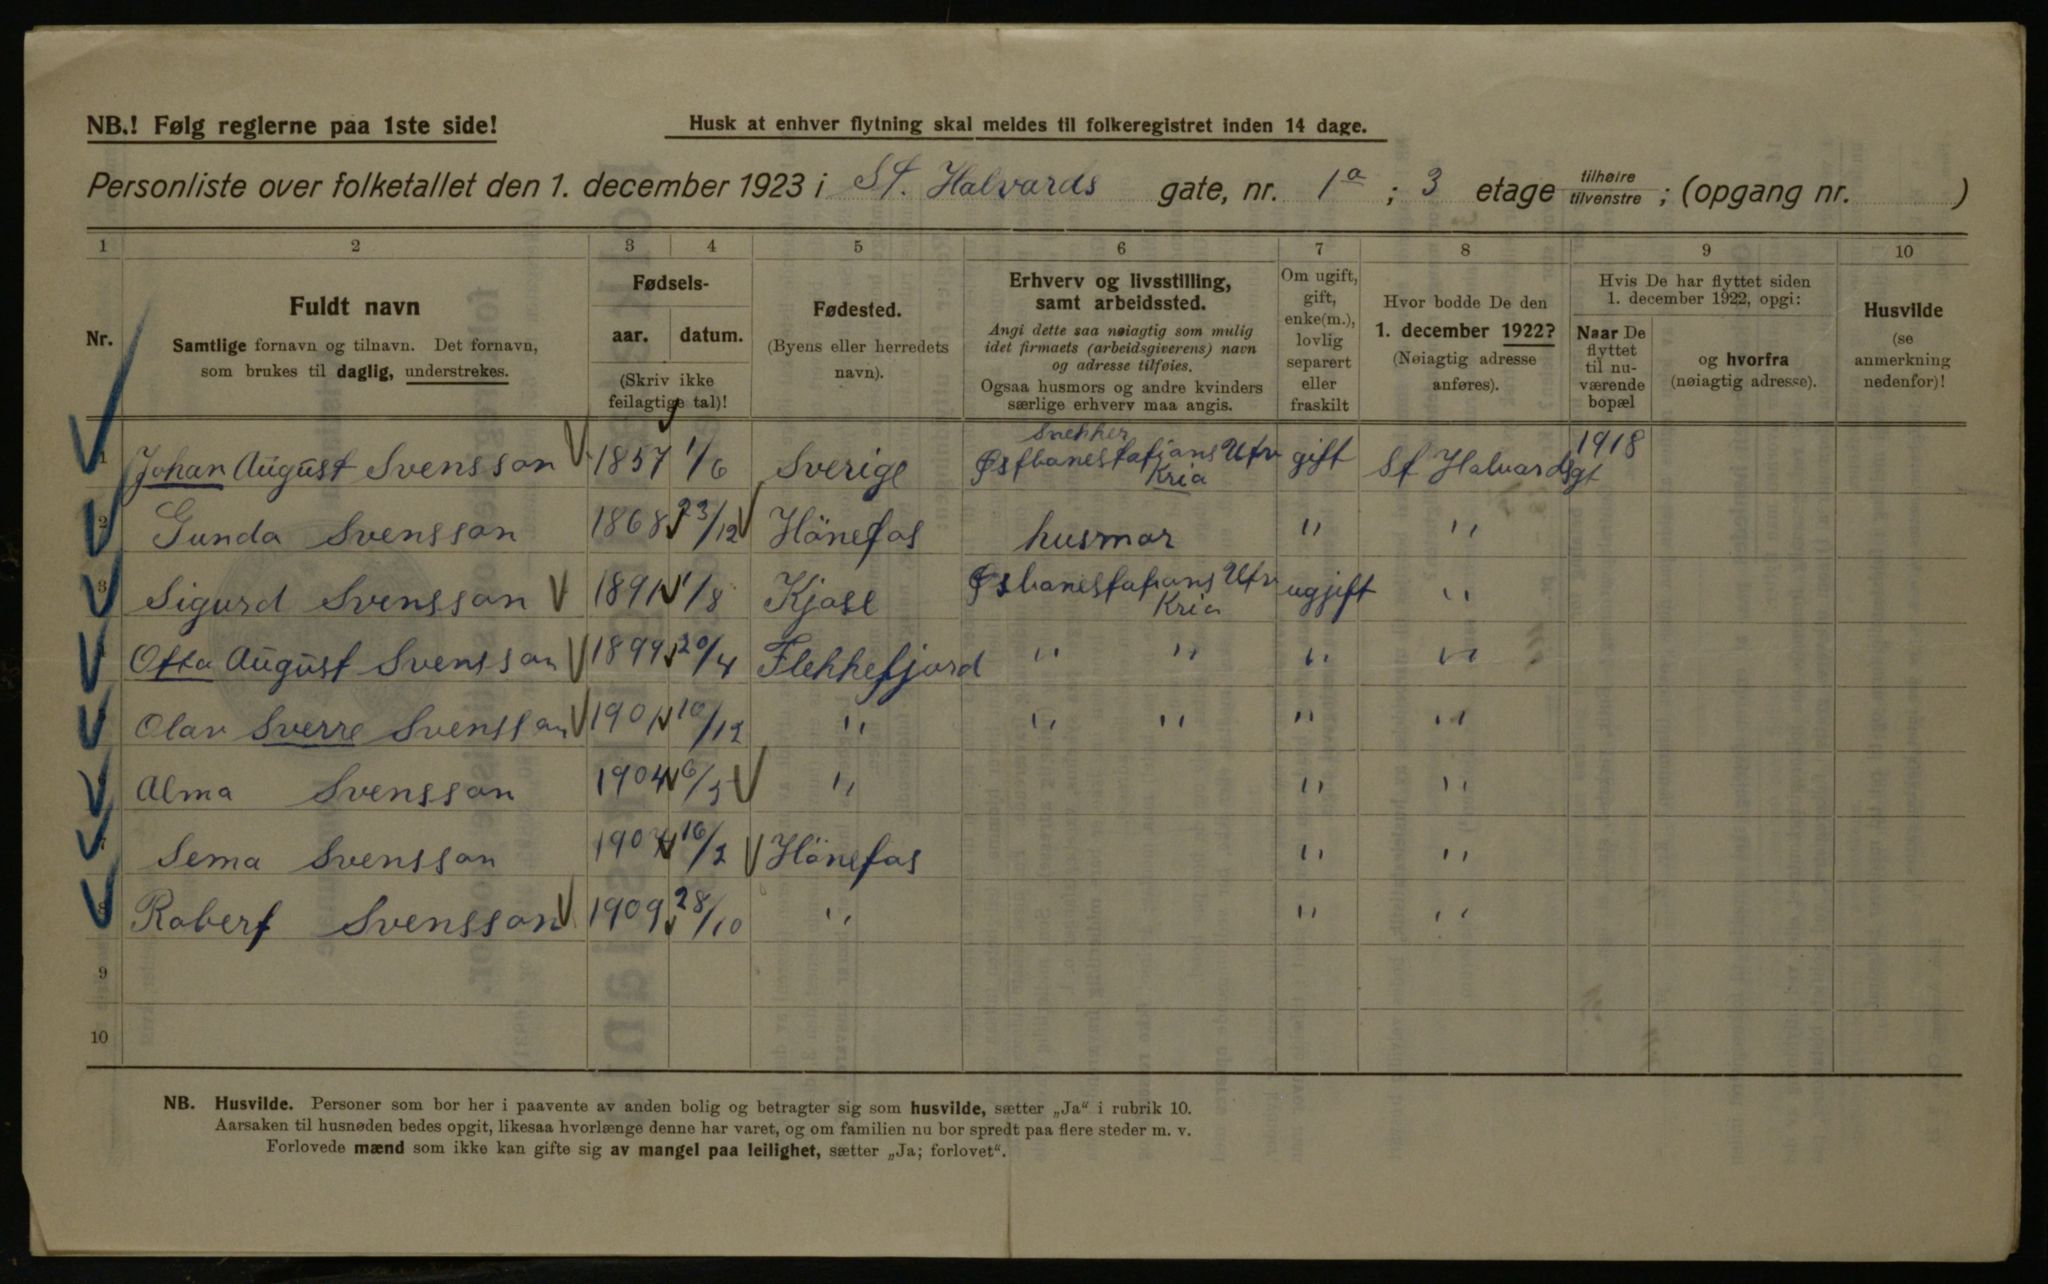 NB.! Følg reglerne paa 1ste side!
Husk at enhver flytning skal meldes til folkeregistret inden 14 dage.
Personliste over folketallet den 1. december 1923 i St. Halvards gate, nr. 1a ; 3 etage tilhøire tilvenstre ; (opgang nr. )
1 2 3 4 5 6 7 8 9 10
Nr.
Fuldt navn
Samtlige fornavn og tilnavn. Det fornavn,
som brukes til daglig, understrekes.
Fødsels-
aar. datum.
(Skriv ikke
feilagtige tal)!
Fødested.
(Byens eller herredets
navn).
Erhverv og livsstilling,
samt arbeidssted.
Angi dette saa nøiagtig som mulig
idet firmaets (arbeidsgiverens) navn
og adresse tilføies.
Ogsaa husmors og andre kvinders
særlige erhverv maa angis.
Om ugift,
gift,
enke(m.),
lovlig
separert
eller
fraskilt
Hvor bodde De den
1. december 1922?
(Nøiagtig adresse
anføres).
Hvis De har flyttet siden
1. december 1922, opgi:
Naar De
flyttet
til nu-
værende
bopæl
og hvorfra
(nøiagtig adresse).
Husvilde
(se
anmerkning
nedenfor)!
Snekker
1 Johan August Svensson 1857 1/6 Sverige Østbanestatjans Utv gift St Halvardsgt 1918
Kria
2 Gunda Svensson 1868 23/12 Hönefos husmor " "
3 Sigurd Svensson 1891 1/8 Kjose Øsbanestatians Utv ugjift "
Kria
4 Otto August Svensson 1899 20/4 Flekkefjord " " " "
5 Olav Sverre Svensson 1901 10/12 " " " " "
6 Alma Svensson 1904 6/5 " " "
7 Svensson 16/2 Hönefos " "
8 Robert Svensson 1909 28/10 " " "
9
10
NB. Husvilde. Personer som bor her i paavente av anden bolig og betragter sig som husvilde, sætter „Ja" i rubrik 10.
Aarsaken til husnøden bedes opgit, likesaa hvorlænge denne har varet, og om familien nu bor spredt paa flere steder m. v.
Forlovede mænd som ikke kan gifte sig av mangel paa leilighet, sætter „Ja; forlovet".